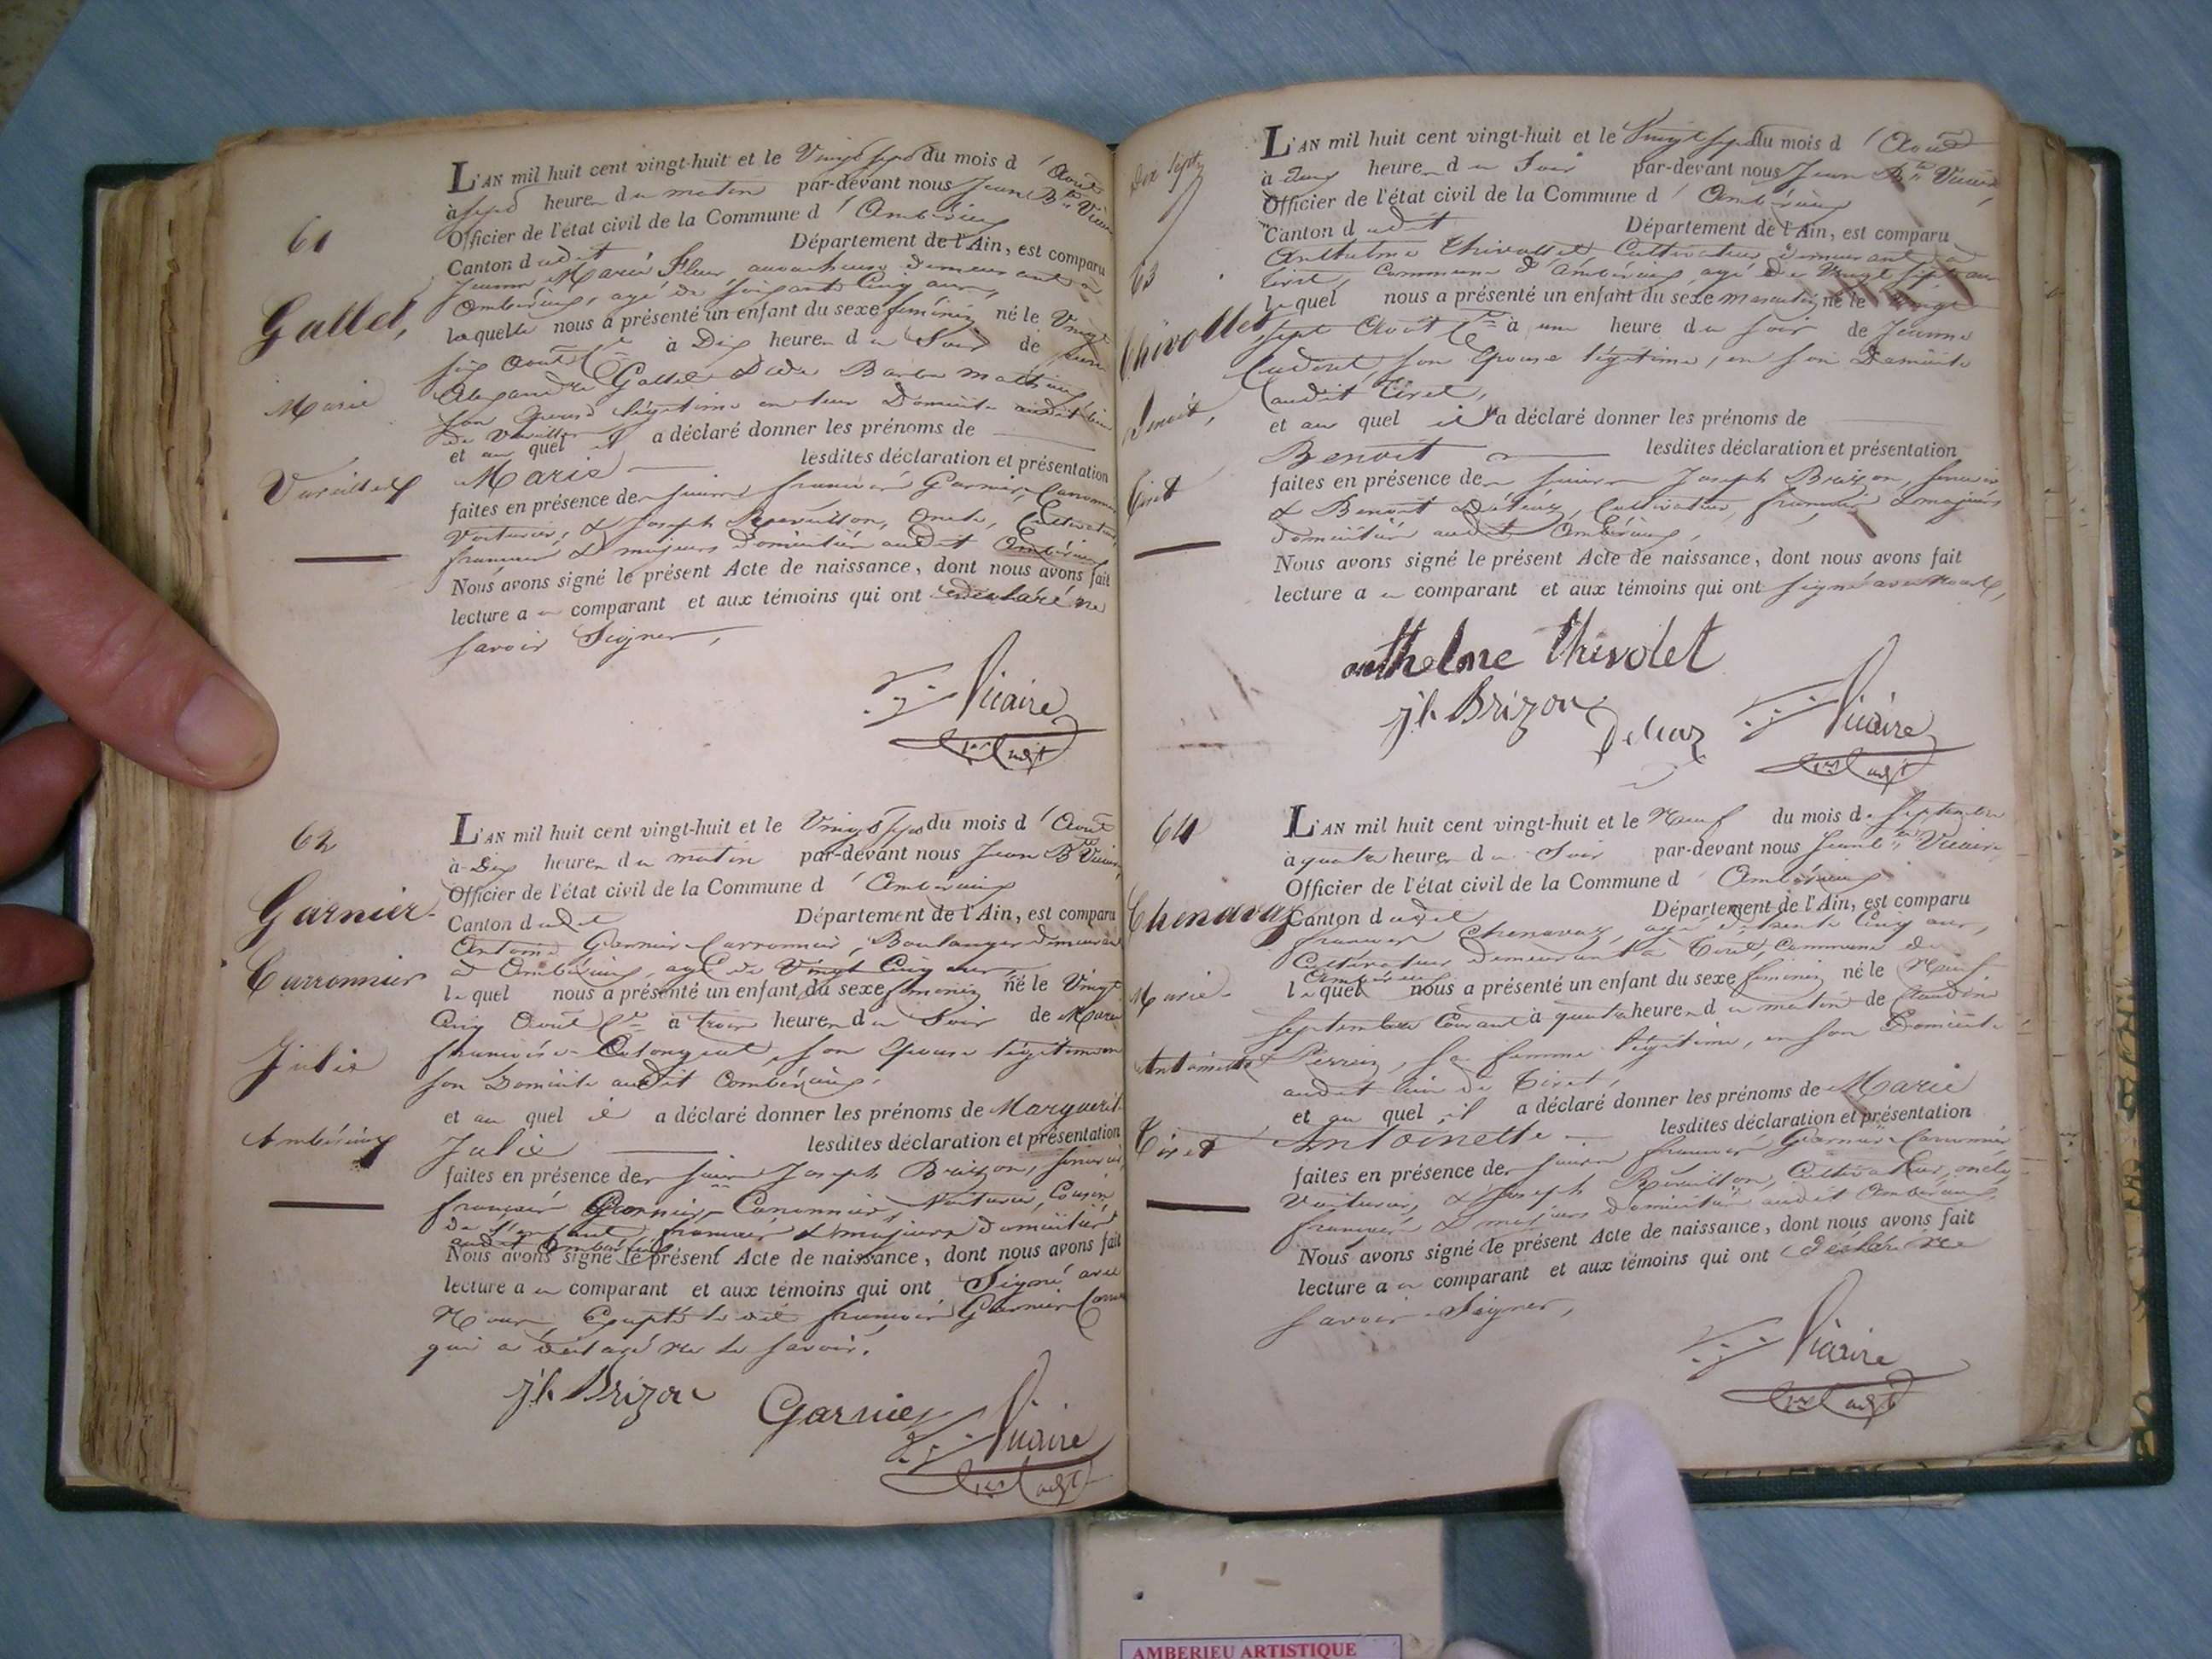 61
Gallet,
Marie
Vareilles
L'AN mil huit cent vingt-huit et le Vingt sept du mois d'Août
à sept heures du matin par-devant nous Jean Bte Vicaire
Officier de l'état civil de la Commune d'Ambérieux
Canton dudit Département de l'Ain, est comparu
Marie Fleur accoucheuse demeurant à
Ambérieux, agé de soixante Cinq ans,
laquelle nous a présenté un enfant du sexe féminin né le Vingt
six Août Ct à Dix heures du Soir de
Alexandre Gallet & de Barbe Mathieu
son épouse légitime en leur Domicile audit lieu
de Vareilles
et au quel il a déclaré donner les prénoms de
Marie lesdites déclaration et présentation
faites en présence des sieurs françois Garnier Caronnier
Voiturier, & Joseph Révoillon, Cultivateur,
français & majeurs domiciliés audit Ambérieux
Nous avons signé le présent Acte de naissance, dont nous avons fait
lecture au comparant et aux témoins qui ont déclaré ne
savoir Signer,
Vicaire
62
Garnier-
Carronnier
Julie
Ambérieux
L'AN mil huit cent vingt-huit et le Vingt sept du mois d'Août
à Dix heures du matin par-devant nous Jean Bte Vicaire
Officier de l'état civil de la Commune d'Ambérieux
Canton dudit Département de l'Ain, est comparu
Antoine Garnier-Carronnier, Boulanger demeurant
à Ambérieux, agé de Vingt Cinq ans,
lequel nous a présenté un enfant du sexe féminin né le Vingt
Cinq Août Ct à trois heures du Soir de Marie
françoise son épouse légitime en
son Domicile audit Ambérieux.
et au quel il a déclaré donner les prénoms de Marguerite
Julie lesdites déclaration et présentation
faites en présence des sieurs Joseph Brizon,
françois Garnier-Caronnier, Voiturier, Cousin
de l'enfant, français & majeurs domiciliés
audit Ambérieux
Nous avons signé le présent Acte de naissance, dont nous avons fait
lecture au comparant et aux témoins qui ont Signé avec
Nous, Excepté le dit françois Garnier Caron
qui a déclaré ne le savoir.
jh Brizon Garnier
Vicaire
63
Thivollet
Benoit,
Tiret
L'AN mil huit cent vingt-huit et le Vingt sept du mois d'Août
à deux heures du Soir par-devant nous Jean Bte Vicaire
Officier de l'état civil de la Commune d'Ambérieux
Canton dudit Département de l'Ain, est comparu
Anthelme Thivollet Cultivateur demeurant à
Tiret, Commune d'Ambérieux agé de Vingt sept ans
lequel nous a présenté un enfant du sexe masculin né le Vingt
sept Août Ct à une heure du soir de Jeanne
son Epouse légitime, en son Domicile
audit Tiret,
et au quel il a déclaré donner les prénoms de
Benoit lesdites déclaration et présentation
faites en présence des sieurs Joseph Brizon,
& Benoit Cultivateur, français & majeurs
domiciliés audit Ambérieux,
Nous avons signé le présent Acte de naissance, dont nous avons fait
lecture au comparant et aux témoins qui ont signé avec Nous,
anthelme thivolet
jh Brizon
Vicaire
64
Chenavaz
Marie-
Antoinette
Tiret
L'AN mil huit cent vingt-huit et le Neuf du mois de Septembre
à quatre heures du Soir par-devant nous Jean Bte Vicaire
Officier de l'état civil de la Commune d'Ambérieux
Canton dudit Département de l'Ain, est comparu
françois Chenavaz, agé de trente Cinq ans,
Cultivateur demeurant à Tiret, Commune de
Ambérieux
lequel nous a présenté un enfant du sexe féminin né le Neuf
Septembre Courant à quatre heures du matin de Claudine
Perrin, sa femme légitime, en son Domicile
audit lieu de Tiret,
et au quel il a déclaré donner les prénoms de Marie
Antoinette lesdites déclaration et présentation
faites en présence des sieurs françois Garnier-Caronnier
Voiturier, & Joseph Révoillon, Cultivateur,
français & majeurs domiciliés audit Ambérieux
Nous avons signé le présent Acte de naissance, dont nous avons fait
lecture au comparant et aux témoins qui ont déclaré ne
savoir Signer,
Vicaire
AMBERIEU ARTISTIQUE